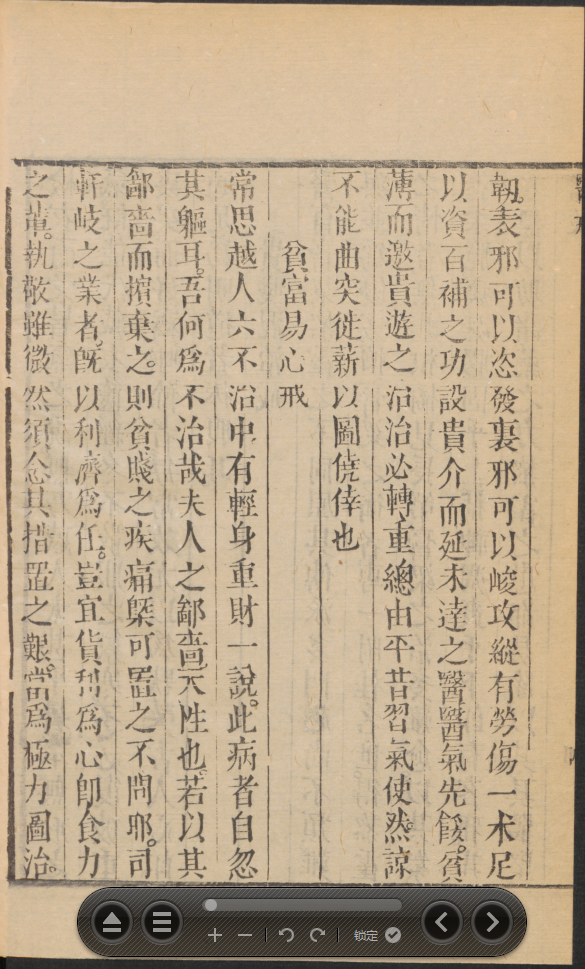 韌。表邪可以恣發裏邪可以峻攻縱有勞傷一朮足
以資百補之功設貴介而延未達之醫醫氣先餒。貧
薄而邀貴遊之治治必轉重總由平昔習氣使然。諒
不能曲突徙薪以圖僥倖也
貧富易心戒
常思越人六不治中有輕身重財一說。此病者自忽
其軀耳。吾何爲不治哉夫人之鄙嗇天性也。若以其
鄙嗇而擯棄之。則貧賤之疾痛槩可置之不問耶。司
軒岐之業者。旣以利濟爲任。豈宜貨利爲心卽食力
之輩。執敬雖微然須念其措置之艱。當爲極力圖治。
锁定